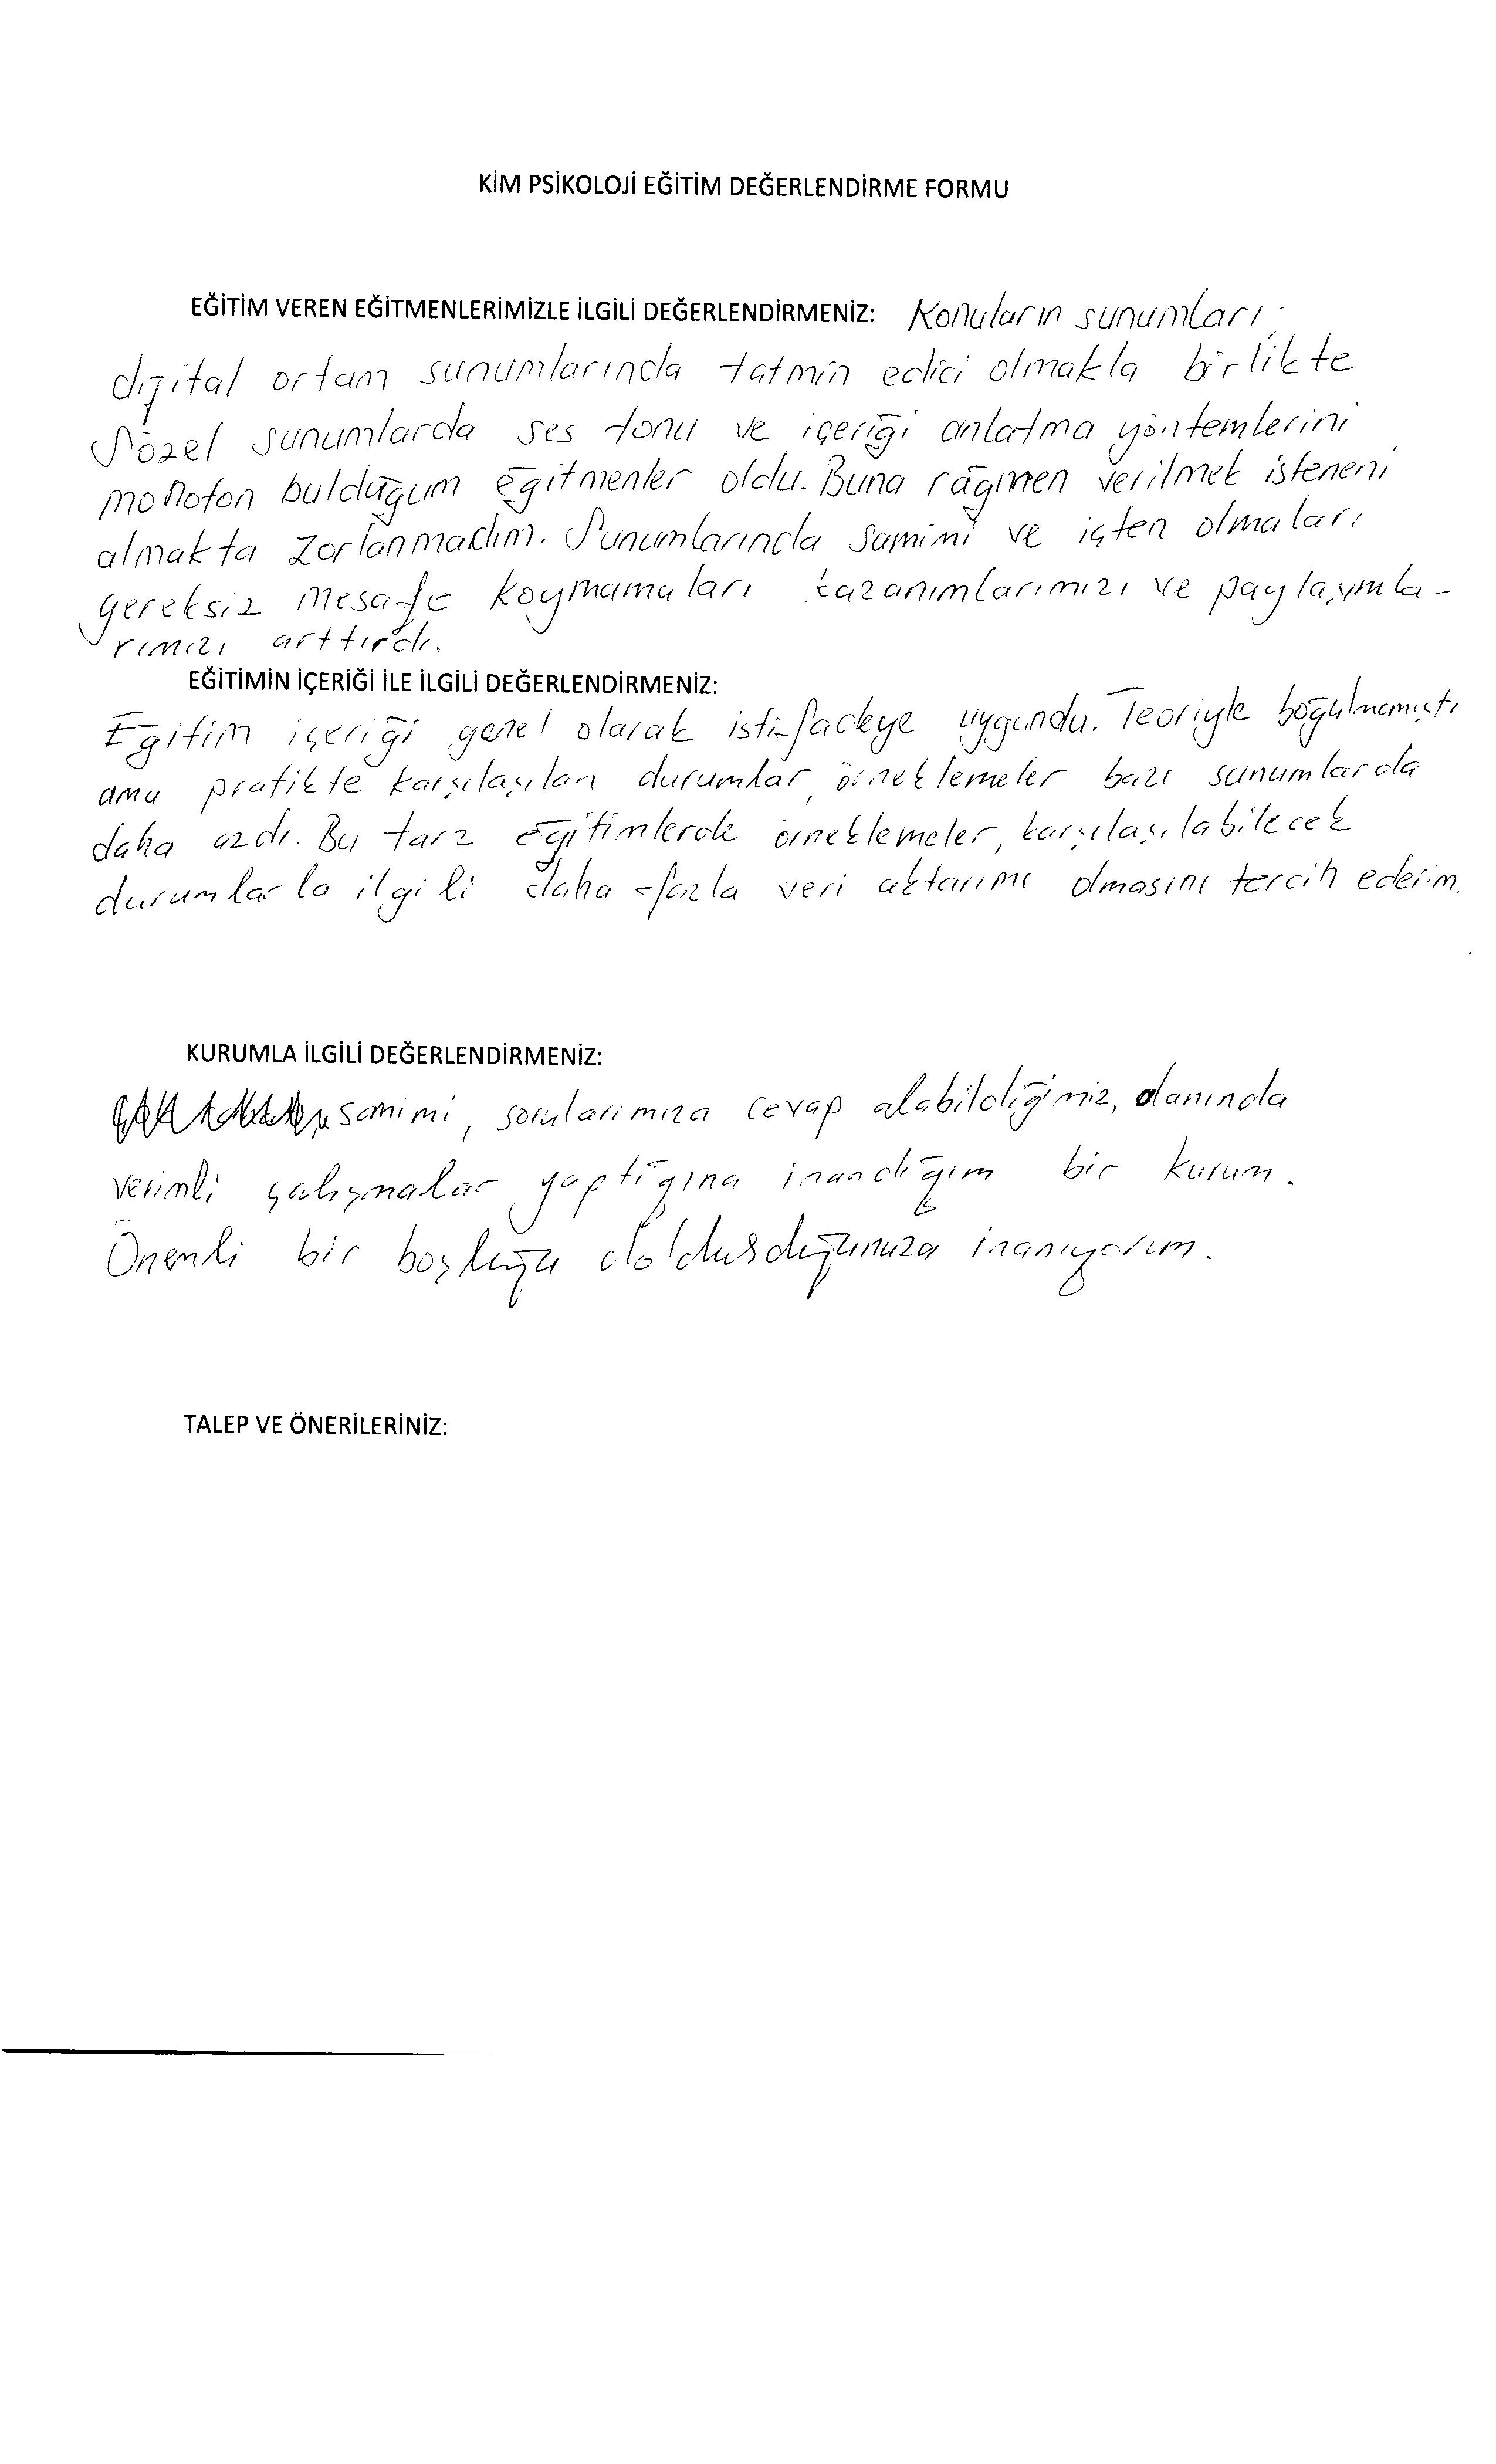 KİM PSİKOLOJİ EĞİTİM DEĞERLENDİRME FORMU
EĞİTİM VEREN EĞİTMENLERİMİZLE İLGİLİ DEĞERLENDİRMENİZ: Konuların sunumları,
dijital ortam sunumlarında tatmin edici olmakla birlikte
sözel sunumlarda ses tonu ve içeriği anlatma yöntemlerini
monoton bulduğum eğitmenler oldu. Buna rağmen verilmek isteneni
almakta zorlanmadım. Sunumlarında samimi ve içten olmaları
gereksiz mesafe koymamaları kazanımlarımızı ve paylaşımla-
rımızı arttırdı.
EĞİTİMİN İÇERİĞİ İLE İLGİLİ DEĞERLENDİRMENİZ:
Eğitim içeriği genel olarak istifadeye uygundu. Teoriyle boğulmamıştı
ama pratikte karşılaşılan durumlar, örneklemeler bazı sunumlarda
daha azdı. Bu tarz eğitimlerde örneklemeler, karşılaşılabilecek
durumlarla ilgili daha fazla veri aktarımı olmasını tercih ederim.
KURUMLA İLGİLİ DEĞERLENDİRMENİZ:
samimi, sorularımıza cevap alabildiğimiz, alanında
verimli çalışmalar yaptığına inandığım bir kurum.
Önemli bir boşluğu doldurduğunuza inanıyorum.
TALEP VE ÖNERİLERİNİZ: